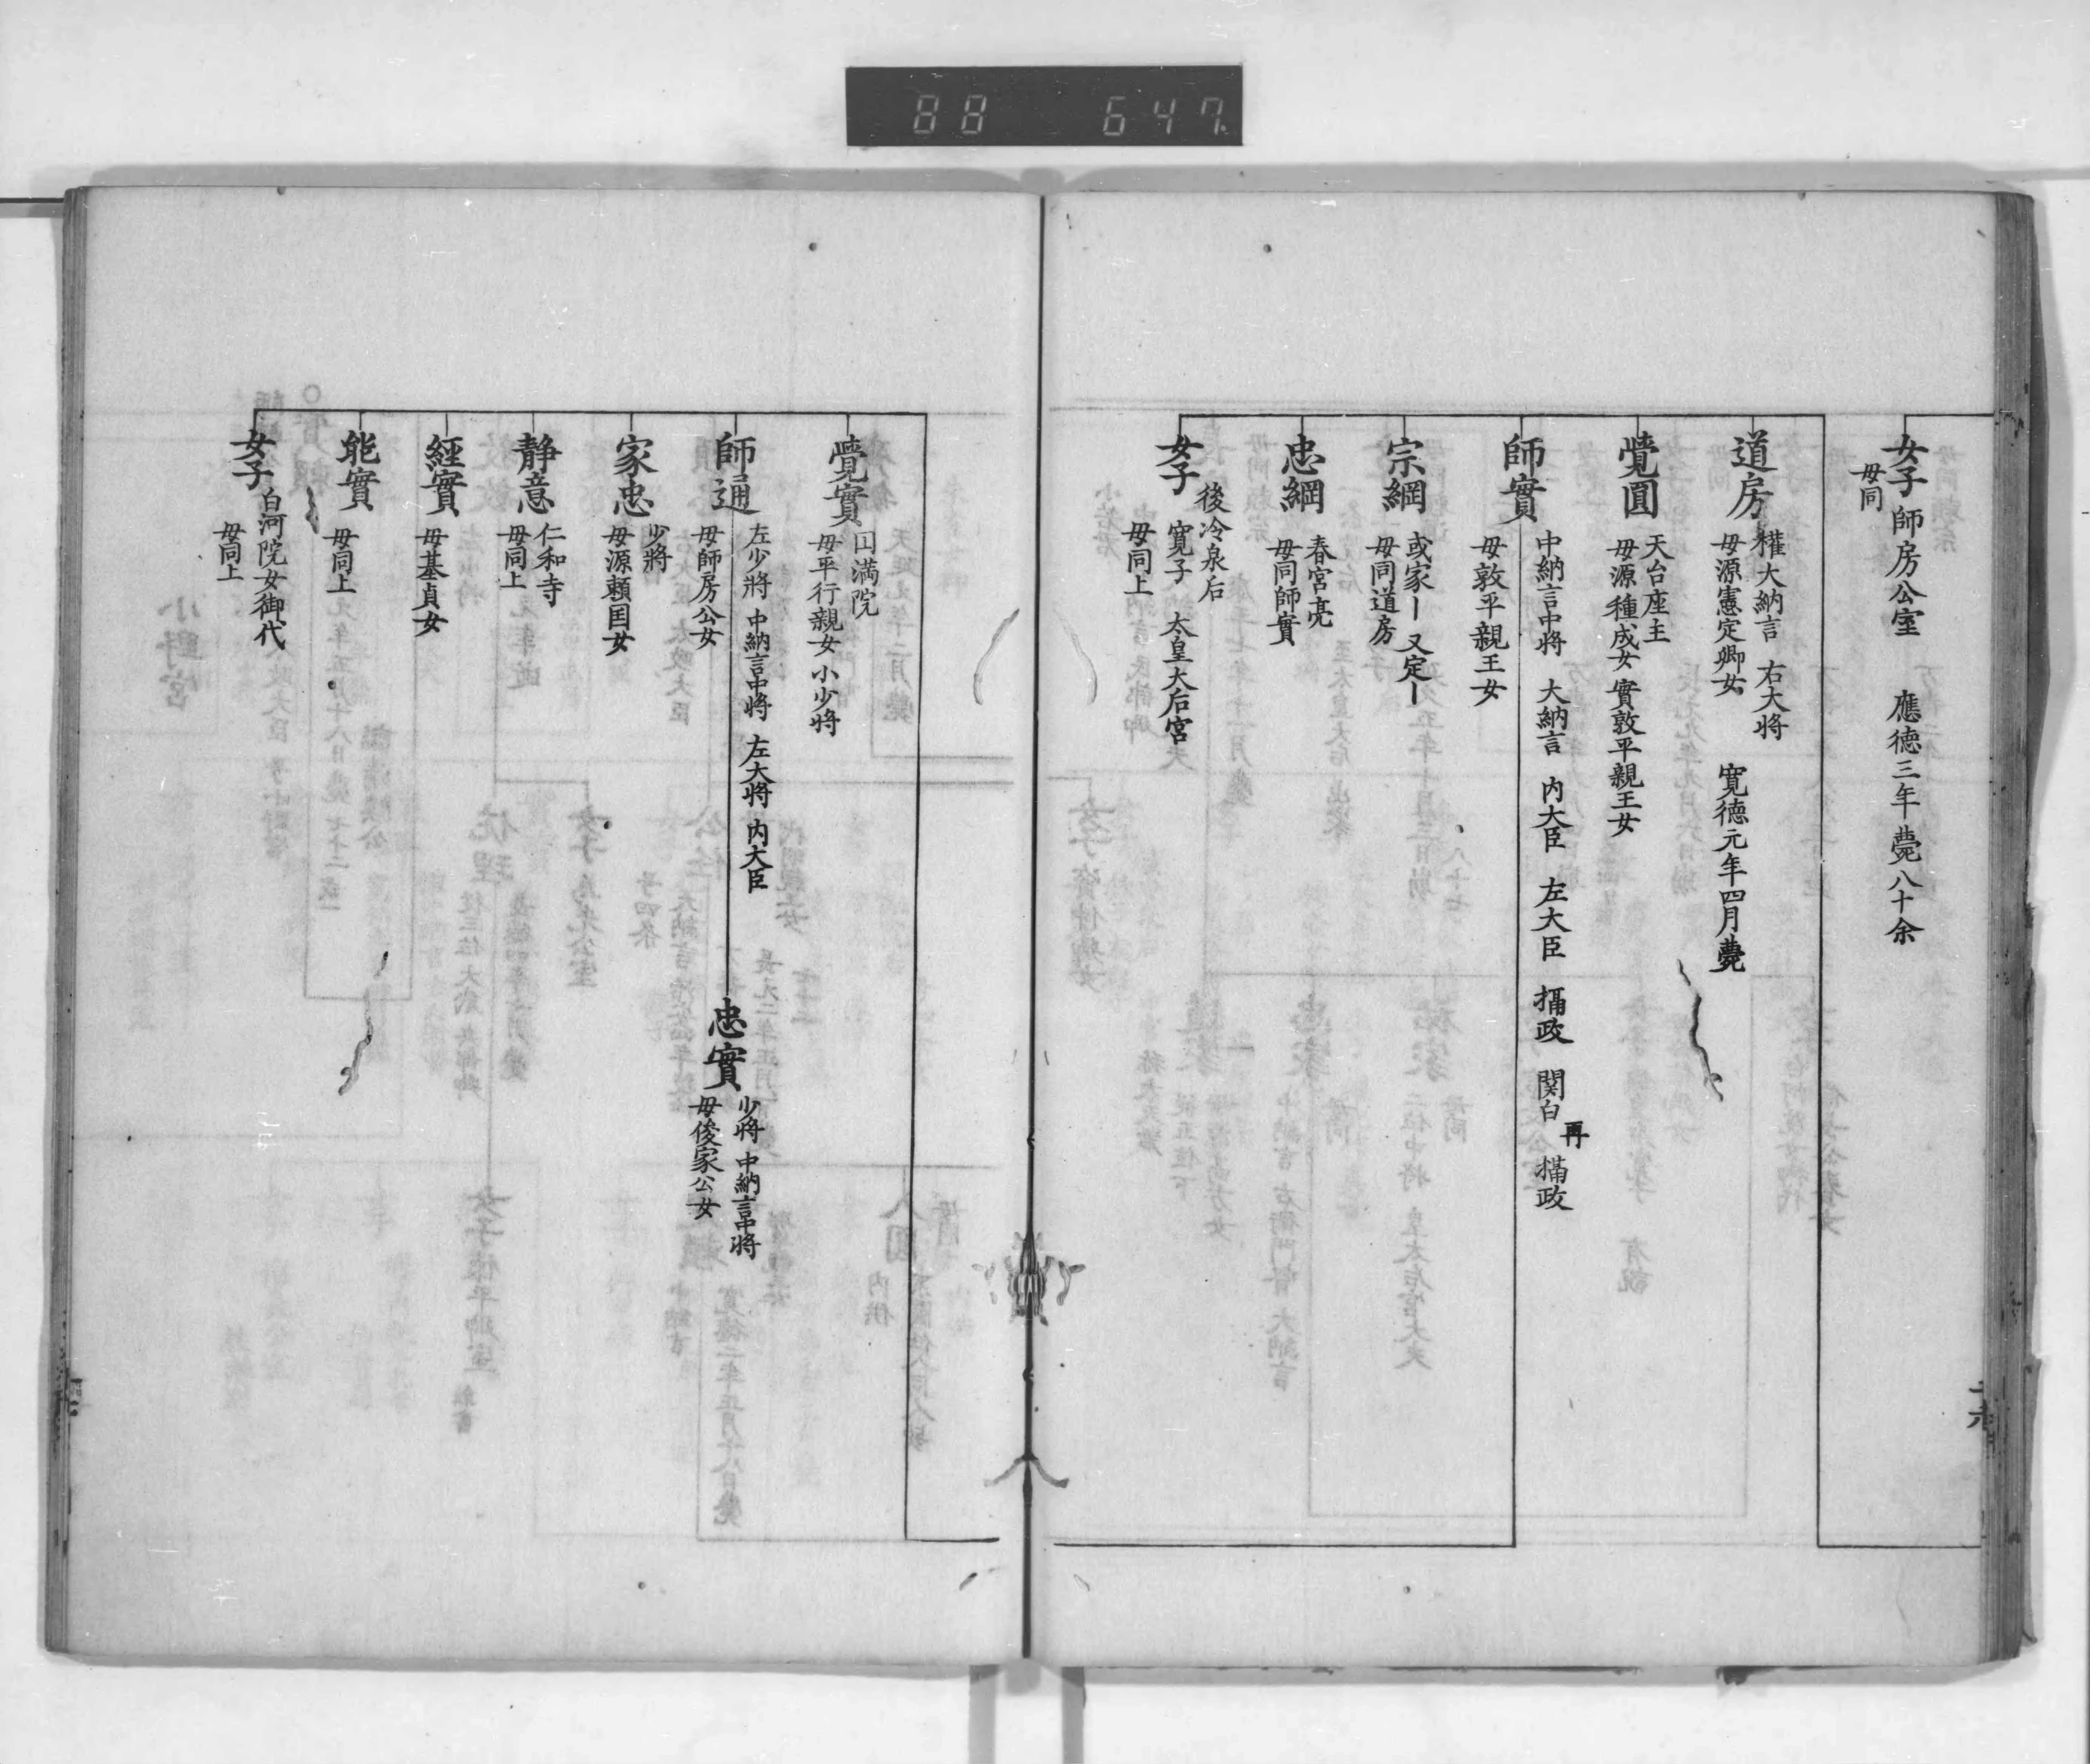 88 647
女子 師房公室 應德三年薨八十余
母同
道房
權大納言 右大将 寛德元年四月薨
母源憲定卿女
覺圓
天台座主
母源種成女 實敦平親王女
師實
中納言中将 大納言 内大臣 左大臣 攝政 関白 再 攝政
母敦平親王女
宗綱
或家ー 又定ー
母同道房
忠綱
春宮亮
母同師實
女子
後冷泉后
寛子 太皇大后宮
母同上
覺實
囗満院
母平行親女 小少将
師通
左少將 中納言中將 左大將 内大臣
母師房公女
忠實
少將 中納言中將
母俊家公女
家忠
少將
母源頼囯女
静意
仁和寺
母同上
經實
母基貞女
能實
母同上
女子
白河院女御代
母同上